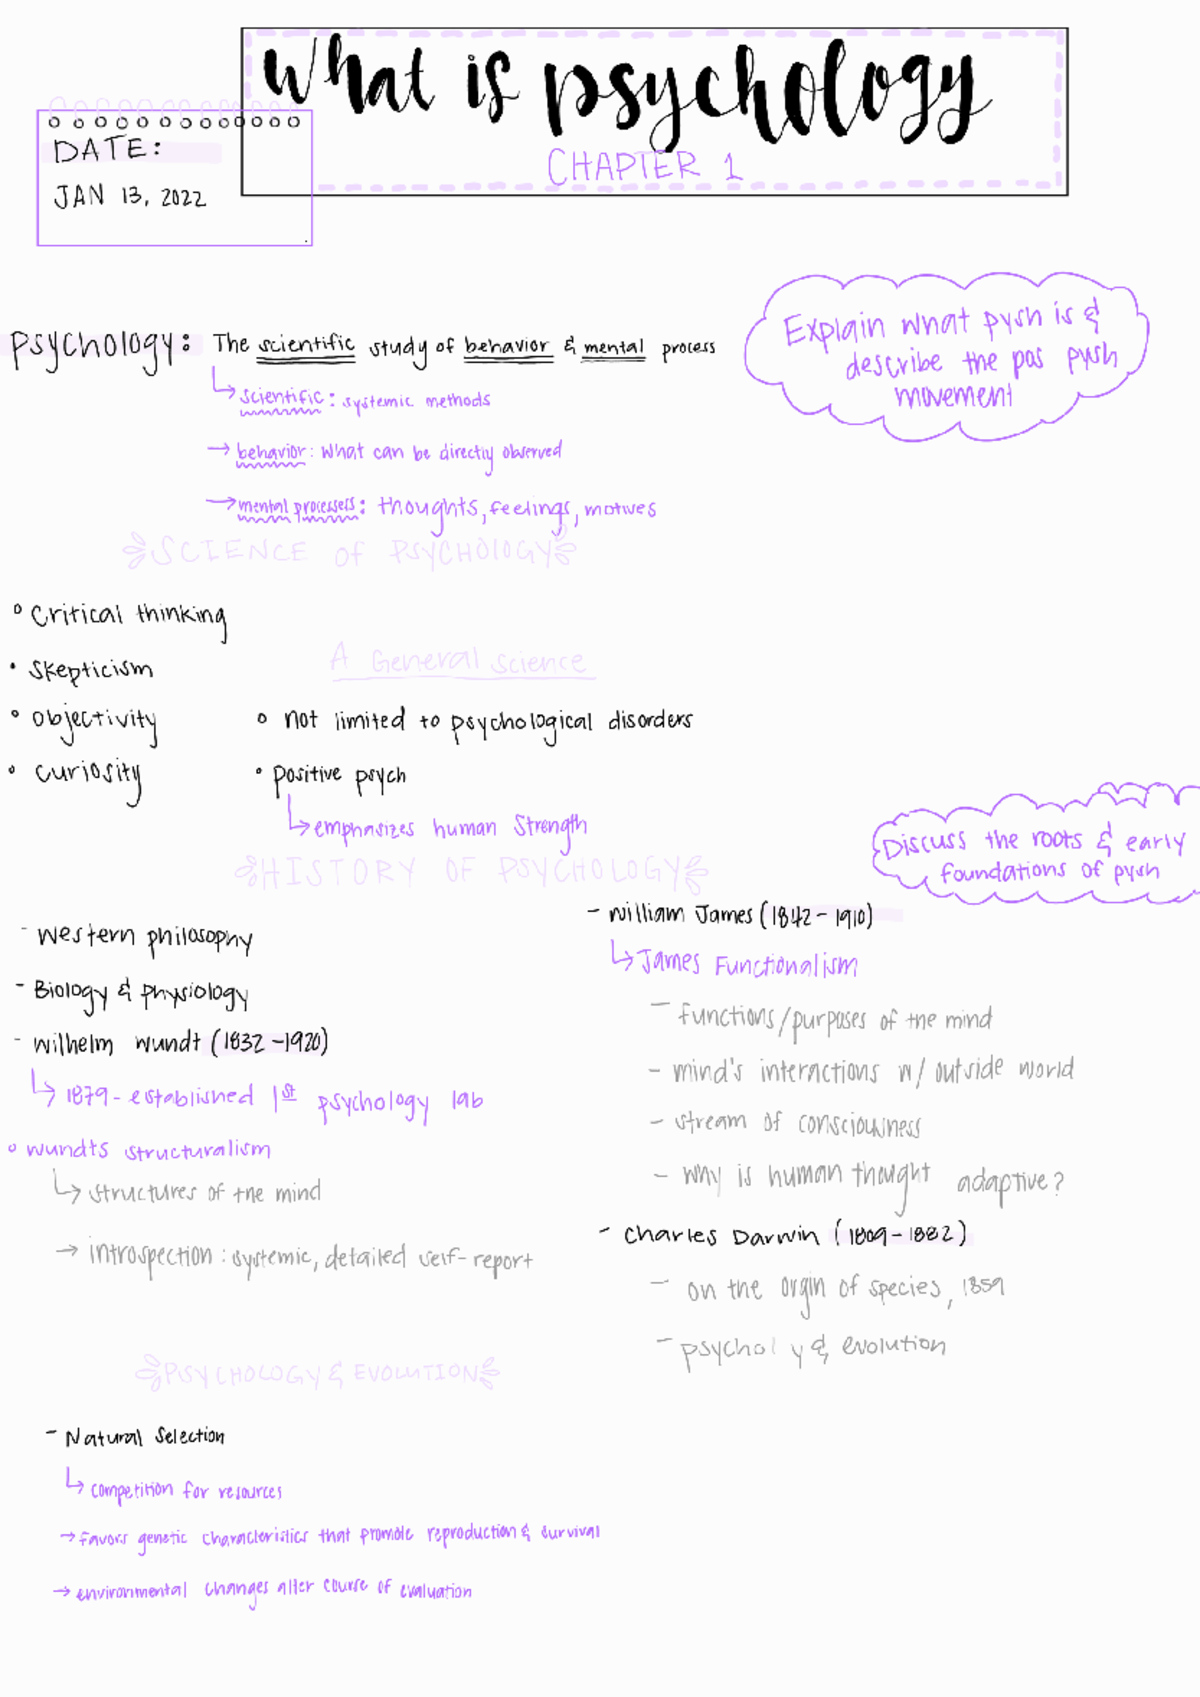 What is psychology
CHAPTER 1
DATE:
JAN 13, 2022
Psychology: The scientific study of behavior & mental process
Explain what pysh is &
describe the pos pysh
movement
scientific: systemic methods
→ behavior: What can be directly observed
→ mental processes: thoughts, feelings, motives
SCIENCE of PSYCHOLOGY
Critical thinking
Skepticism
objectivity
curiosity
A General science
not limited to psychological disorders
positive psych
emphasizes human Strength
HISTORY OF PSYCHOLOGY
Discuss the roots & early
foundations of pysh
- Western philosophy
- Biology & physiology
- Wilhelm Wundt (1832-1920)
1879- established 1st psychology lab
wundts structuralism
structures of the mind
→ introspection: systemic, detailed self-report
- William James (1842-1910)
James Functionalism
- functions/purposes of the mind
- mind's interactions w/ outside world
- stream of consciousness
- why is human thought adaptive?
- Charles Darwin (1809-1882)
- on the orgin of species, 1859
- psychol y & evolution
PSYCHOLOGY & EVOLUTION
- Natural Selection
competition for resources
→ favors genetic characteristics that promote reproduction & survival
→ environmental changes alter course of evaluation